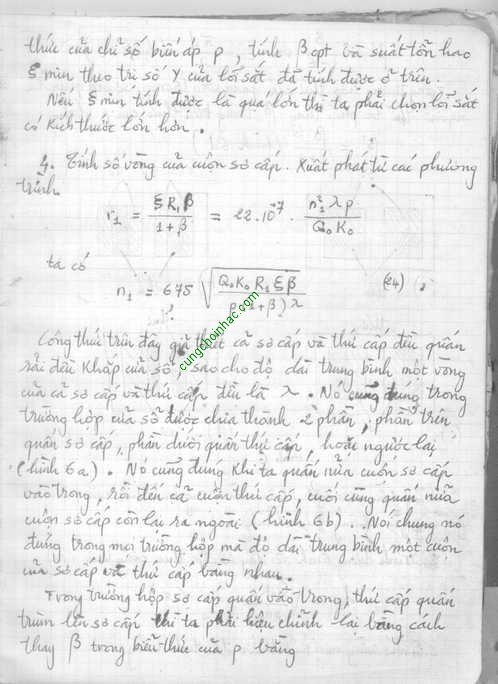 thức của chỉ số biến áp p, tính β opt và suất tổn hao
ξ min theo trị số Y của lõi sắt đã tính được ở trên.
Nếu ξ min tính được là quá lớn thì ta phải chọn lõi sắt
có kích thước lớn hơn.
4. Tính số vòng của cuộn sơ cấp. Xuất phát từ các phương
trình
r₁ = ξ R₁ β / 1 + β = 22.10⁻⁷ . n₁² λ p / Q₀ K₀
ta có
n₁ = 675 √ Q₀ K₀ R₁ ξ β / p(1 + β) λ (24)
Công thức trên đây giả thiết cả sơ cấp và thứ cấp đều quấn
rải đều khắp cửa sổ, sao cho độ dài trung bình một vòng
của cả sơ cấp và thứ cấp đều là λ. Nó cũng đúng trong
trường hợp cửa sổ được chia thành 2 phần, phần trên
quấn sơ cấp, phần dưới quấn thứ cấp, hoặc ngược lại
(hình 6a). Nó cũng đúng khi ta quấn nửa cuộn sơ cấp
vào trong, rồi đến cả cuộn thứ cấp, cuối cùng quấn nửa
cuộn sơ cấp còn lại ra ngoài (hình 6b)... Nói chung nó
đúng trong mọi trường hợp mà độ dài trung bình một cuộn
của sơ cấp và thứ cấp bằng nhau.
Trong trường hợp sơ cấp quấn vào trong, thứ cấp quấn
trùm lên sơ cấp thì ta phải hiệu chỉnh lại bằng cách
thay β trong biểu thức của p bằng
cungchoinhac.com